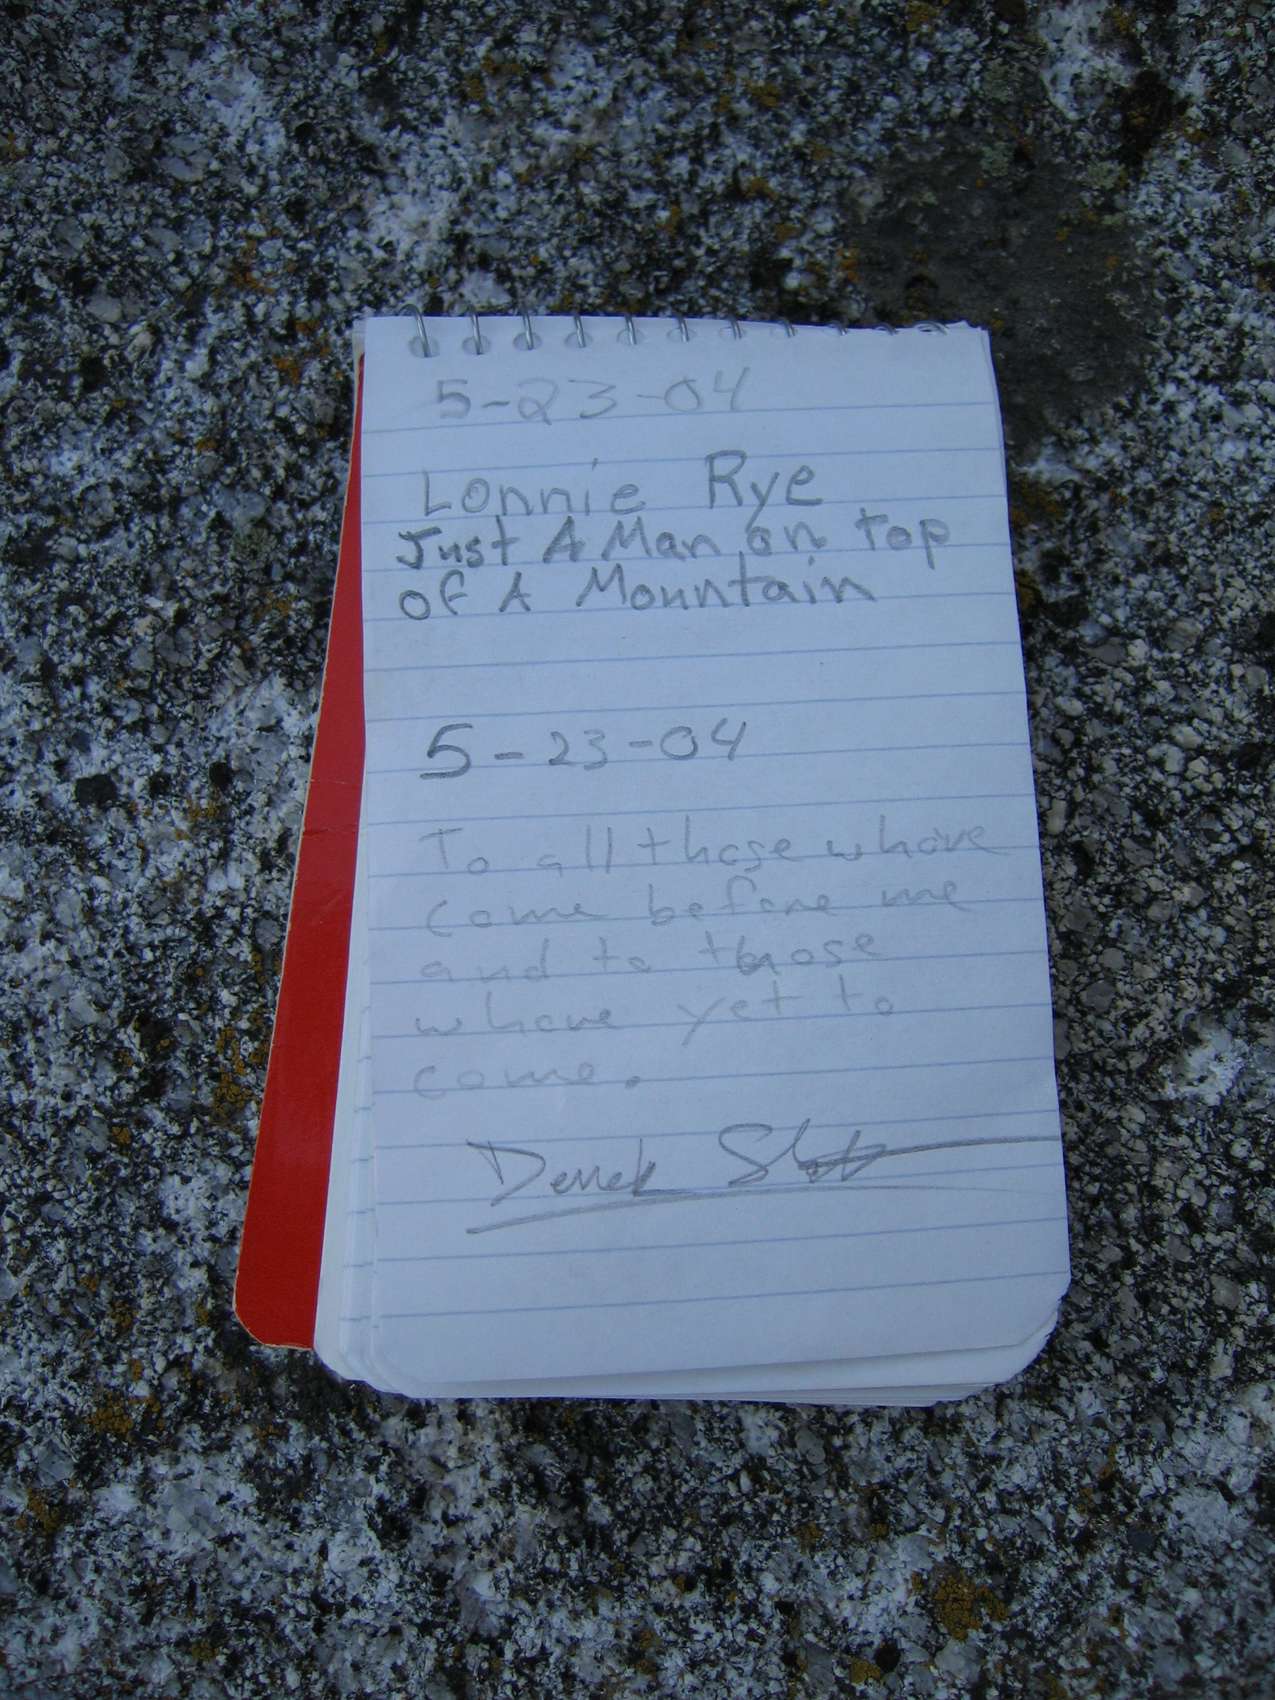 5-23-04
Lonnie Rye
Just A Man on top
of A Mountain
5-23-04
To all those whove
come before me
and to those
whove yet to
come.
Derrek